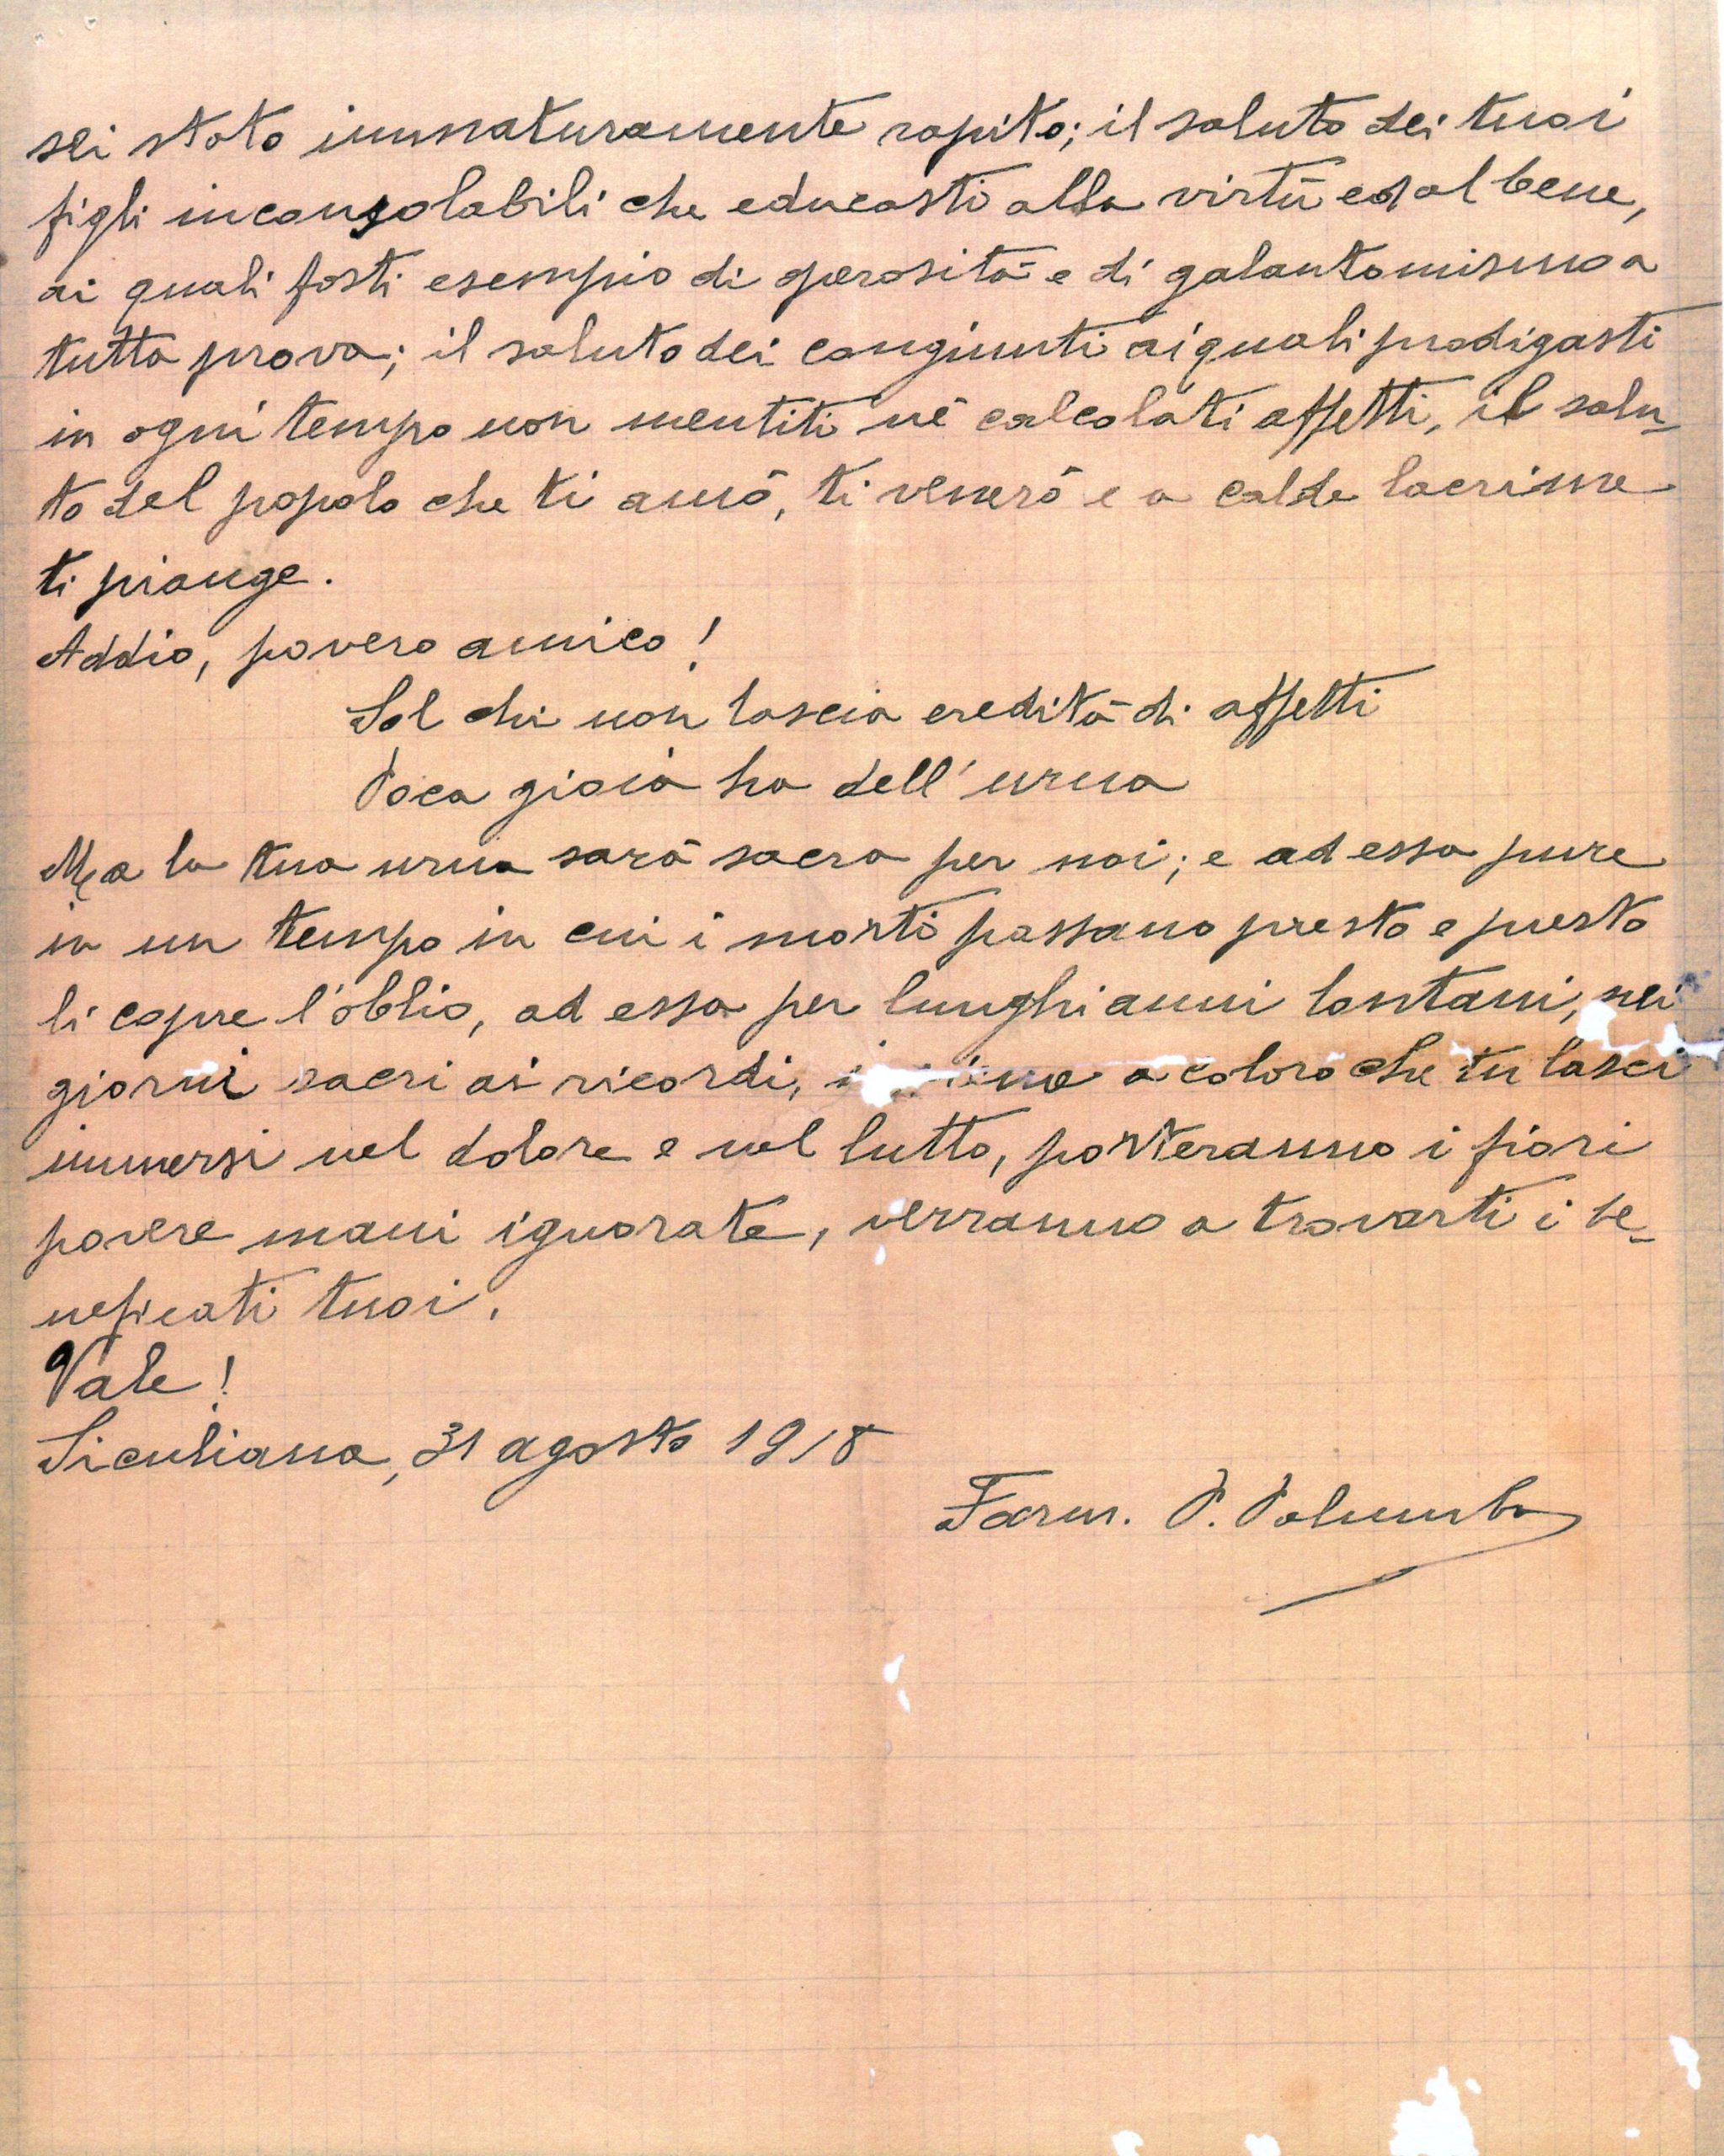 sei stato immaturamente rapito; il saluto dei tuoi
figli inconsolabili che educasti alla virtù ed al bene,
ai quali fosti esempio di operosità e di galantomismo a
tutta prova; il saluto dei congiunti ai quali prodigasti
in ogni tempo non mentiti nè calcolati affetti, il salu-
to del popolo che ti amò, ti venerò e a calde lacrime
ti piange.
Addio, povero amico!
Sol chi non lascia eredità di affetti
Poca gioia ha dell'urna
Ma la tua urna sarà sacra per noi; e ad essa pure
in un tempo in cui i morti passano presto e presto
li copre l'oblio, ad essa per lunghi anni lontani, nei
giorni sacri ai ricordi, a coloro che tu lasci
immersi nel dolore e nel lutto, porteranno i fiori
povere mani ignorate, verranno a trovarti i be-
neficati tuoi.
Vale!
Siculiana, 31 agosto 1918
Farm. P. Palumbo